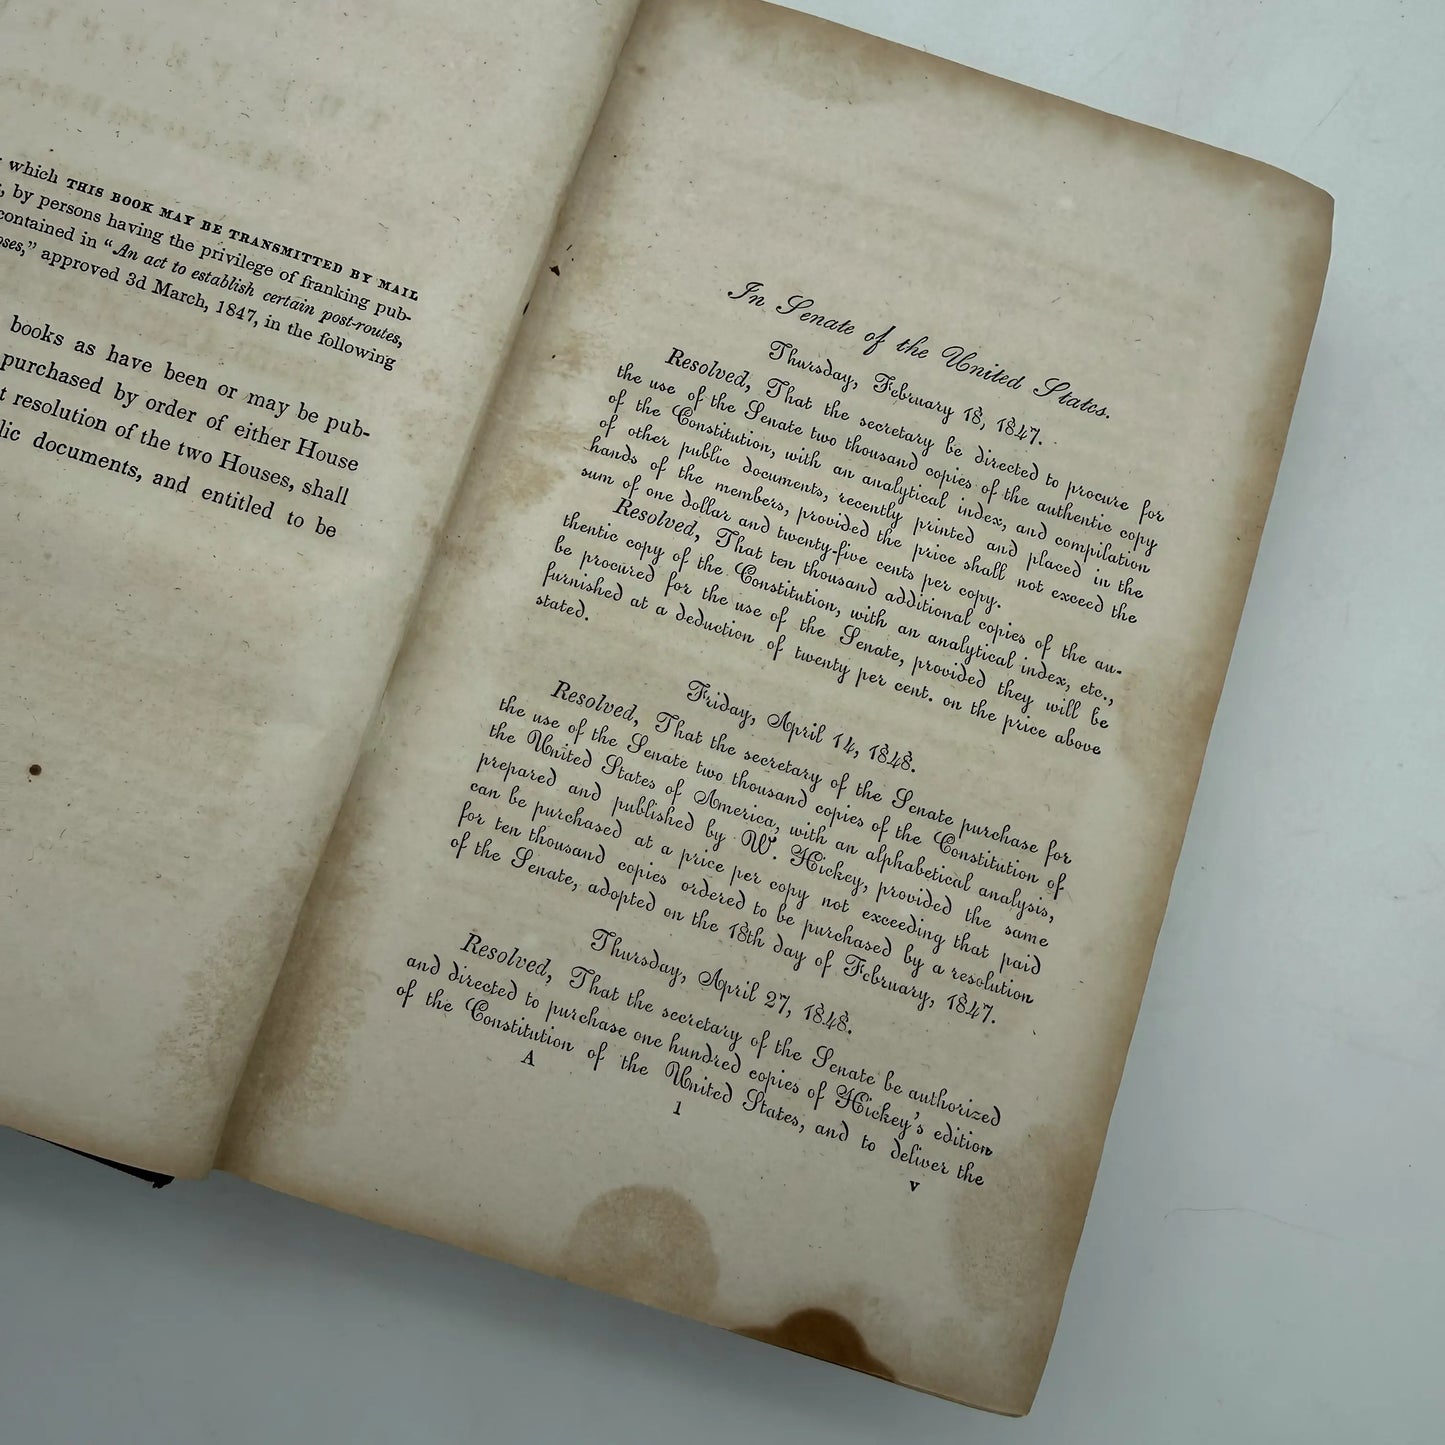 which THIS BOOK MAY BE TRANSMITTED BY MAIL
by persons having the privilege of franking pub-
contained in "An act to establish certain post-routes,
approved 3d March, 1847, in the following
books as have been or may be pub-
purchased by order of either House
resolution of the two Houses, shall
documents, and entitled to be
In Senate of the United States.
Thursday, February 18, 1847.
Resolved, That the secretary be directed to procure for
the use of the Senate two thousand copies of the authentic copy
of the Constitution, with an analytical index, and compilation
of other public documents, recently printed and placed in the
hands of the members, provided the price shall not exceed the
sum of one dollar and twenty-five cents per copy.
Resolved, That ten thousand additional copies of the au-
thentic copy of the Constitution, with an analytical index, etc.,
be procured for the use of the Senate, provided they will be
furnished at a deduction of twenty per cent. on the price above
stated.
Friday, April 14, 1848.
Resolved, That the secretary of the Senate purchase for
the use of the Senate two thousand copies of the Constitution of
the United States of America, with an alphabetical analysis,
prepared and published by W. Hickey, provided the same
can be purchased at a price per copy not exceeding that paid
for ten thousand copies ordered to be purchased by a resolution
of the Senate, adopted on the 18th day of February, 1847.
Thursday, April 27, 1848.
Resolved, That the secretary of the Senate be authorized
and directed to purchase one hundred copies of Hickey's edition
of the Constitution of the United States, and to deliver the
A 1 v